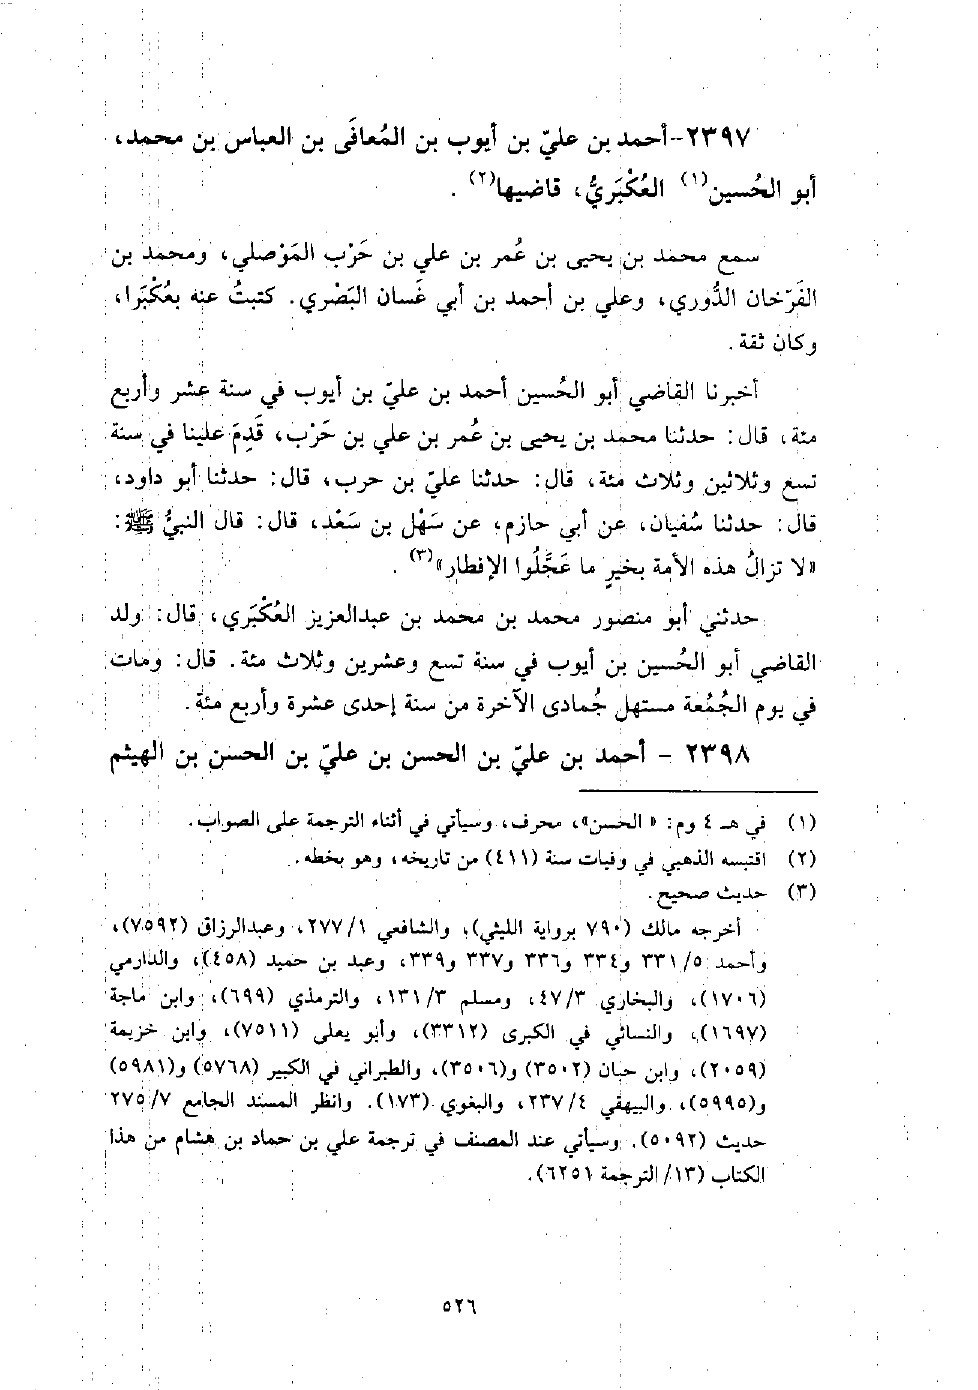 ٢٣٩٧-أحمد بن عليّ بن أيوب بن المُعافَى بن العباس بن محمد،
أبو الحُسين(١) العُكْبَريُّ، قاضيها(٢) .
سمع محمد بن يحيى بن عُمر بن علي بن حَرْب المَوْصلي، ومحمد بن
الفَرّخان الدُّوري، وعلي بن أحمد بن أبي غَسان البَصْري. كتبتُ عنه بعُكْبَرا،
وكان ثقة .
أخبرنا القاضي أبو الحُسين أحمد بن عليّ بن أيوب في سنة عشر وأربع
مئة، قال: حدثنا محمد بن يحيى بن عُمر بن علي بن حَرْب، قَدِمَ علينا في سنة
تسع وثلاثين وثلاث مئة، قال: حدثنا عليّ بن حرب، قال: حدثنا أبو داود،
قال: حدثنا سُفيان، عن أبي حازم، عن سَهْل بن سَعْد، قال: قال النبيُّ ﷺ:
«لا تزالُ هذه الأمة بخيرٍ ما عَجَّلُوا الإفطار»(٣) .
حدثني أبو منصور محمد بن محمد بن عبدالعزيز العُكْبَري، قال: ولد
القاضي أبو الحُسين بن أيوب في سنة تسع وعشرين وثلاث مئة. قال: ومات
في يوم الجُمُعة مستهل جُمادى الآخرة من سنة إحدى عشرة وأربع مئة.
٢٣٩٨ - أحمد بن عليّ بن الحسن بن عليّ بن الحسن بن الهيثم
(١) في هـ ٤ وم: «الحسن»، محرف، وسيأتي في أثناء الترجمة على الصواب.
(٢) اقتبسه الذهبي في وفيات سنة (٤١١) من تاريخه، وهو بخطه.
(٣) حديث صحيح.
أخرجه مالك (٧٩٠ برواية الليثي)، والشافعي ١/ ٢٧٧، وعبدالرزاق (٧٥٩٢)،
وأحمد ٥/ ٣٣١ و٣٣٤ و٣٣٦ و٣٣٧ و٣٣٩، وعبد بن حميد (٤٥٨)، والدارمي
(١٧٠٦)، والبخاري ٣/ ٤٧، ومسلم ٣/ ١٣١، والترمذي (٦٩٩)، وابن ماجة
(١٦٩٧)، والنسائي في الكبرى (٣٣١٢)، وأبو يعلى (٧٥١١)، وابن خزيمة
(٢٠٥٩)، وابن حبان (٣٥٠٢) و(٣٥٠٦)، والطبراني في الكبير (٥٧٦٨) و(٥٩٨١)
و(٥٩٩٥)، والبيهقي ٤/ ٢٣٧، والبغوي (١٧٣). وانظر المسند الجامع ٧/ ٢٧٥
حديث (٥٠٩٢). وسيأتي عند المصنف في ترجمة علي بن حماد بن هشام من هذا
الكتاب (١٣/ الترجمة ٦٢٥١).
٥٢٦